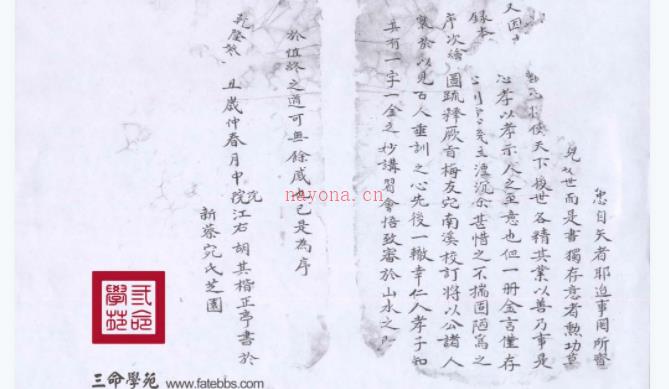 忠自矢者耶迨事罔所督
兒次世而是書獨存意者勲功草
使天下後世各精其業以善乃事是
心孝以孝示人之至意也但一冊金言僅存
主湮沉余甚惜之不揣固陋為之
圖疏釋厥旨梅友宛南溪校訂將以公諸人
案於以見古人垂訓之心先後一轍幸仁人孝子知
其有一字一金之妙講習會悟致審於山水之
又因
錄本
序次繪
於值終之道可無餘感也已是為序
丑歲仲春月中浣江右胡其楷正亭書於
新蔡宛氏芝園
nayona.cn
三命學苑
三命學苑 www.fatebbs.com